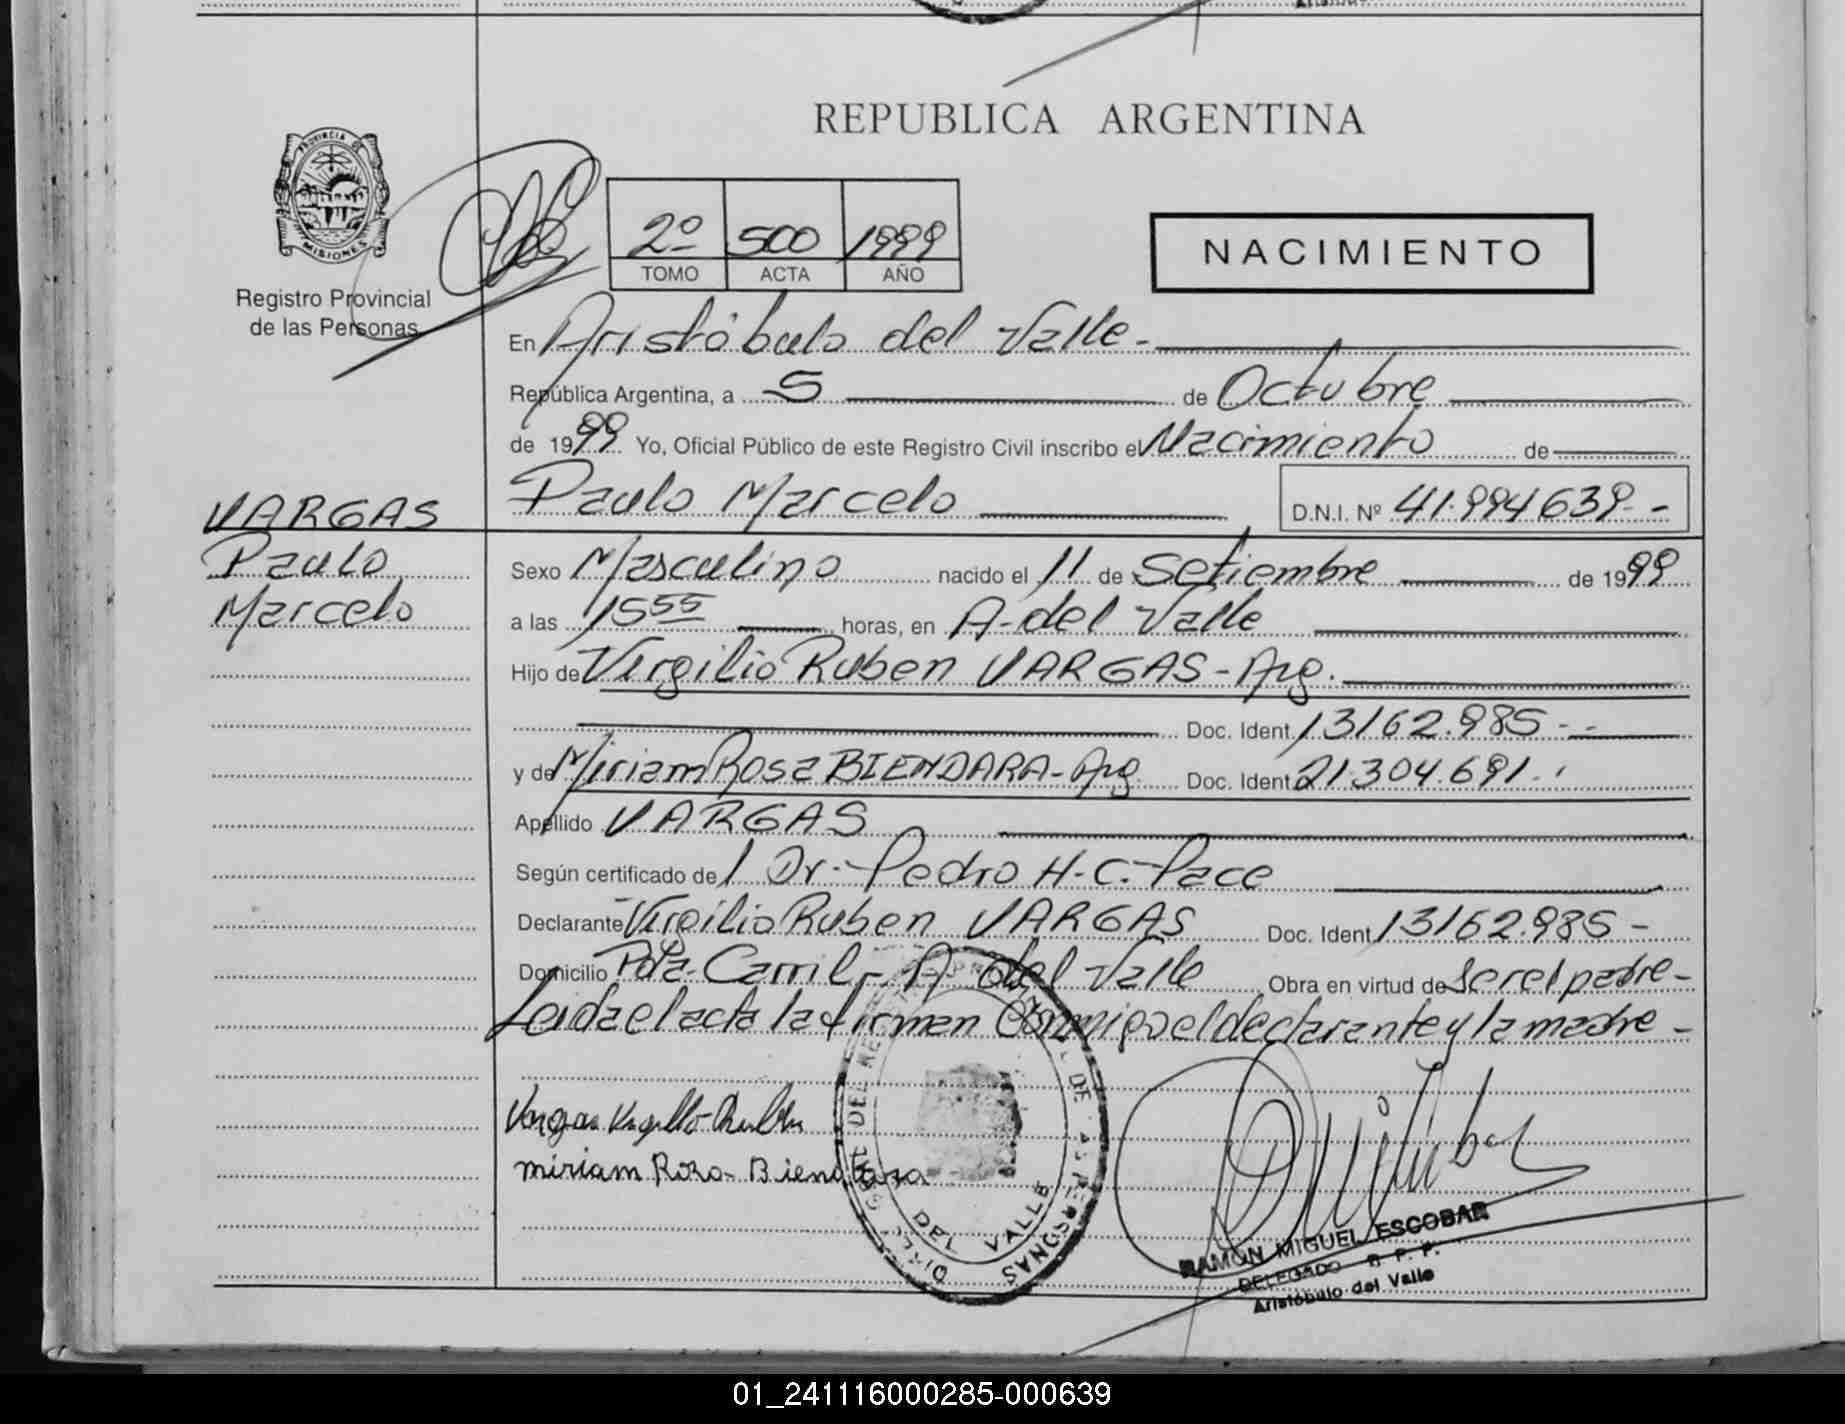 REPUBLICA ARGENTINA
PROVINCIA DE
MISIONES
Registro Provincial
de las Personas
2º 500 1999
TOMO ACTA AÑO
NACIMIENTO
En Aristóbulo del Valle.-
República Argentina, a 5 de Octubre
de 1999 Yo, Oficial Público de este Registro Civil inscribo el Nacimiento de
Paulo Marcelo D.N.I. Nº 41.994639.-
VARGAS
Paulo
Marcelo
Sexo Masculino nacido el 11 de Setiembre de 1999
a las 15 55 horas, en A. del Valle
Hijo de Virgilio Ruben VARGAS - Arg.
Doc. Ident. 13162.985 -
y de Miriam Rosa BIENDARA - Arg. Doc. Ident. 21.304.691.
Apellido VARGAS
Según certificado de l Dr. Pedro H. C. Pace
Declarante Virgilio Ruben VARGAS Doc. Ident. 13162.985 -
Domicilio Pda. Carril - A. del Valle Obra en virtud de ser el padre -
Leida el acta la firman Conmigo el declarante y la madre -
Vargas Virgilio Ruben
miriam Rosa Biendara
DEL VALLE
RAMON MIGUEL ESCOBAR
DELEGADO R. P. P.
Aristóbulo del Valle
01_241116000285-000639